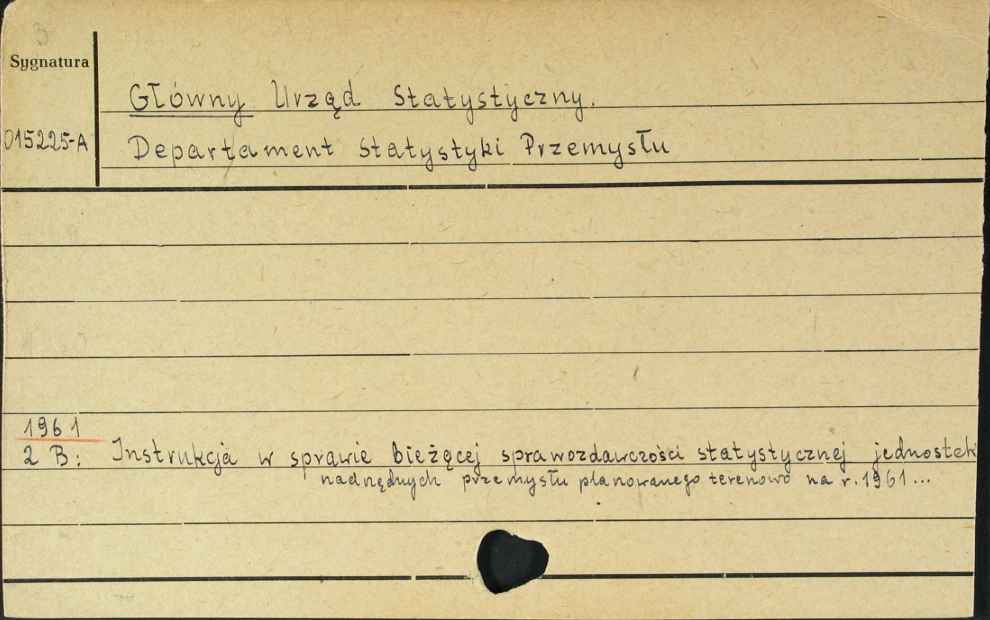 Sygnatura
Główny Urząd Statystyczny.
015225-A
Departament Statystyki Przemysłu
1961
2 B: Instrukcja w sprawie bieżącej sprawozdawczości statystycznej jednostek
nadrzędnych przemysłu planowanego terenowo na r. 1961...